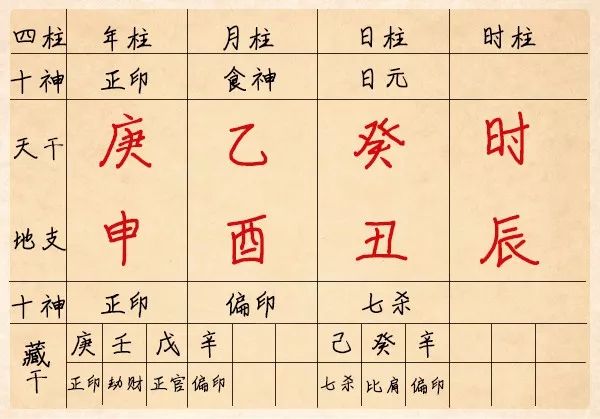 四柱 年柱 月柱 日柱 时柱
十神 正印 食神 日元
天干 庚 乙 癸 时
地支 申 酉 丑 辰
十神 正印 偏印 七杀
藏干 庚 壬 戊 辛 己 癸 辛
正印 劫财 正官 偏印 七杀 比肩 偏印